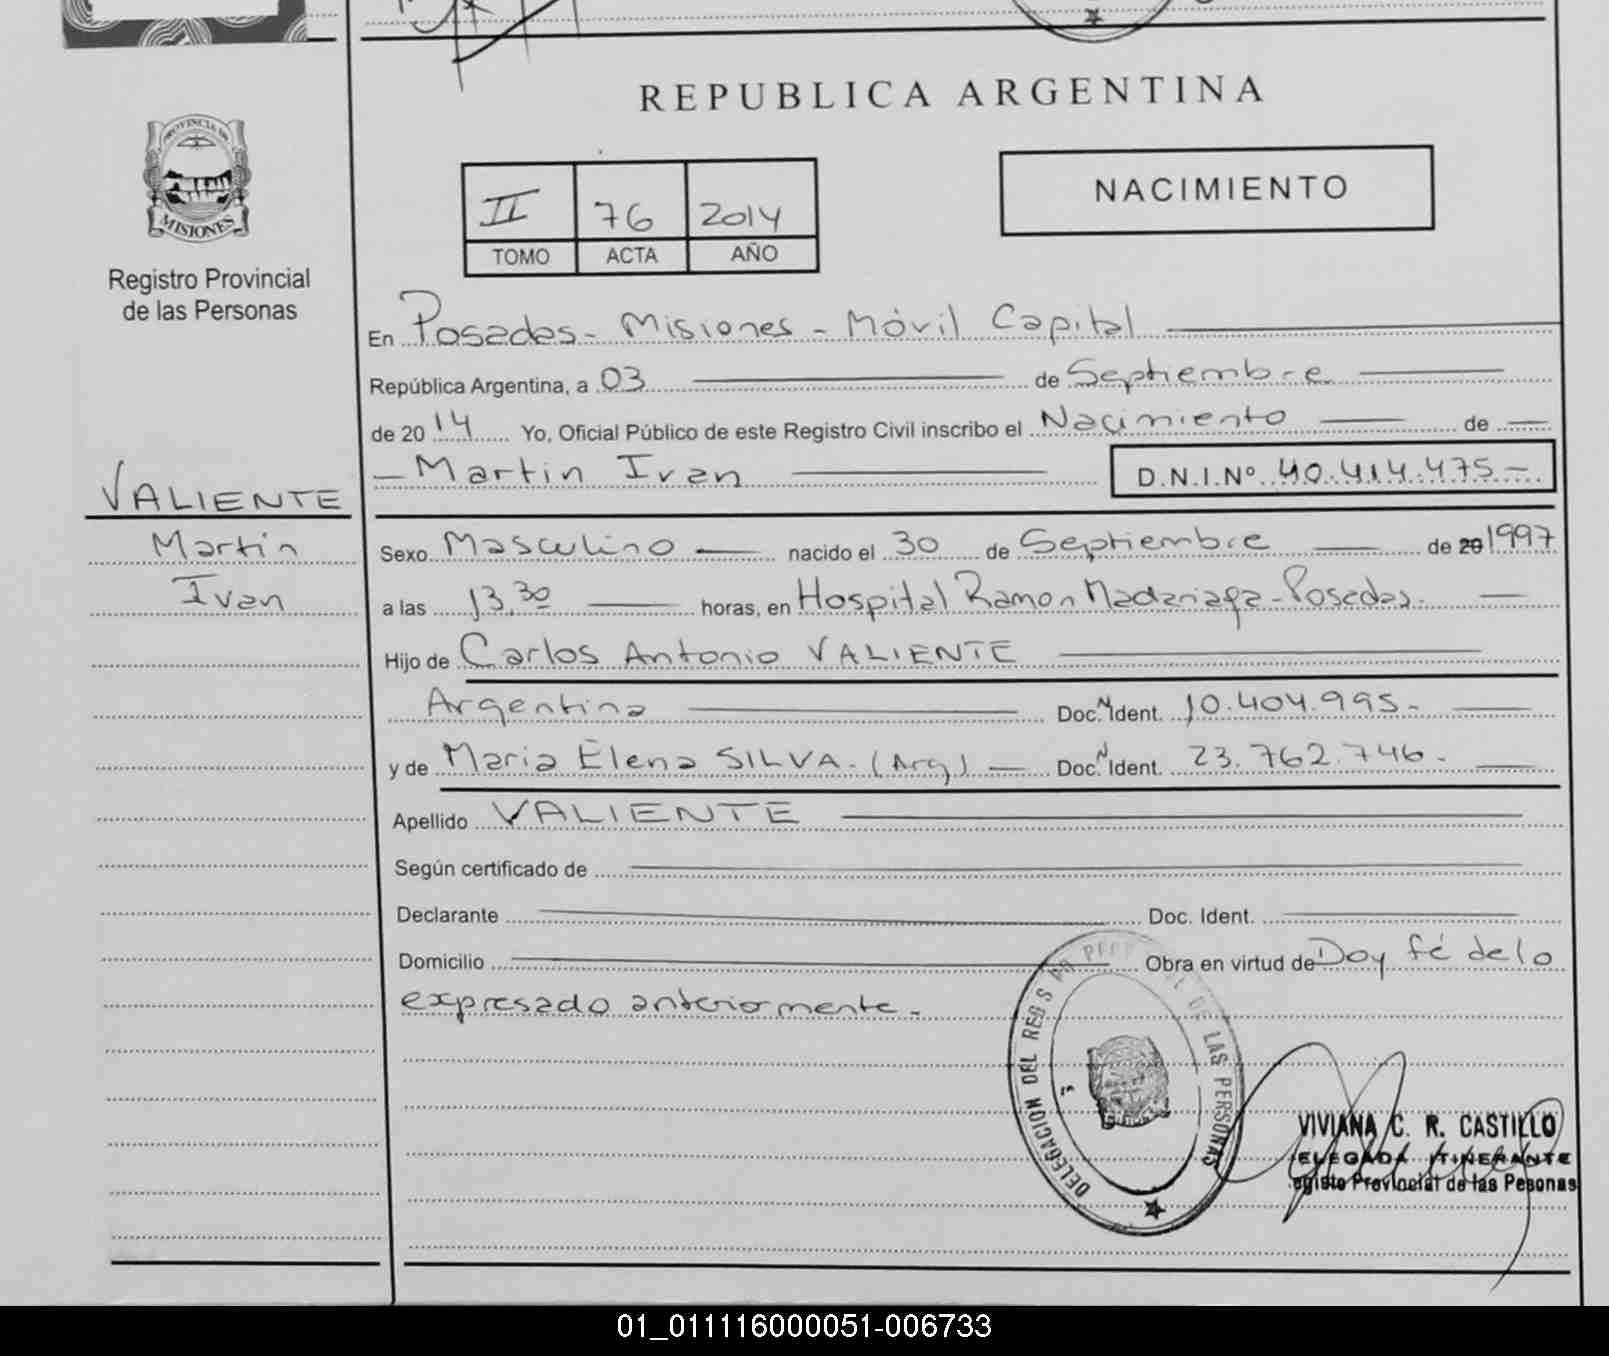 REPUBLICA ARGENTINA
PROVINCIA DE
MISIONES
Registro Provincial
de las Personas
NACIMIENTO
II 76 2014
TOMO ACTA AÑO
En Posadas - Misiones - Móvil Capital
República Argentina, a 03 de Septiembre
de 2014 Yo, Oficial Público de este Registro Civil inscribo el Nacimiento de
- Martin Ivan D.N.I.Nº 40.414.475-
VALIENTE
Martin
Ivan
Sexo Masculino nacido el 30 de Septiembre de 20 1997
a las 13.30 horas, en Hospital Ramon Madariaga - Posadas.
Hijo de Carlos Antonio VALIENTE
Argentina Doc. N Ident. 10.404.995-
y de Maria Elena SILVA. (Arg) Doc. N Ident. 23.762.746-
Apellido VALIENTE
Según certificado de
Declarante Doc. Ident.
Domicilio Obra en virtud de Doy fé de lo
expresado anteriormente.
DELEGACION DEL REG DE LAS PERSONAS
VIVIANA C. R. CASTILLO
ELEGADA ITINERANTE
egisto Provincial de las Pesonas
01_011116000051-006733